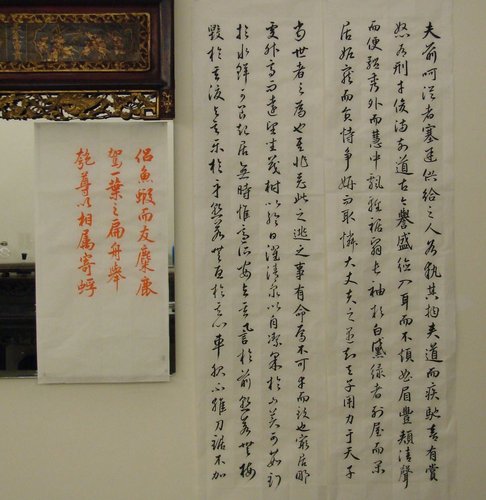 夫前呵從者塞途供給之人各執其物夾道而疾馳喜有賞
怒有刑才俊滿前道古今譽盛德入耳而不煩曲眉豐頰清聲
而便體秀外而慧中飄輕裾翳長袖粉白黛綠者列屋而閑
居妬寵而負恃爭妍而取憐大丈夫之遇知天子用力于天子
當世者之為也吾非惡此之逃之事有命焉不可幸而致也窮居
處升高而遠望坐茂樹以終日濯清泉以自潔采於山美可茹釣
於水鮮可食起居無時惟適之安與其譽於前孰若無
毀於其後與其樂於身孰若無憂於其心車服不維刀鋸不加
侶魚蝦而友麋鹿
駕一葉之扁舟舉
匏尊以相属寄蜉